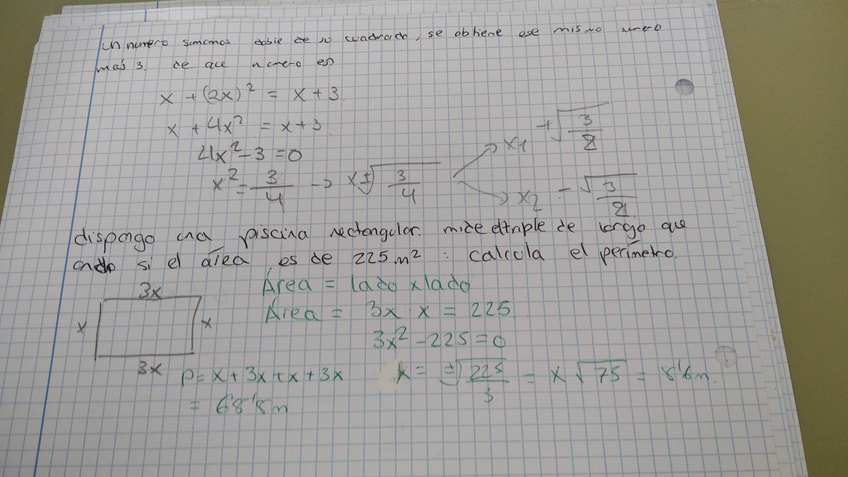 Un numero sumamos doble de su cuadrado, se obtiene ese mismo numero
mas 3. de que numero es
x + (2x)² = x + 3
x + 4x² = x + 3
4x² - 3 = 0
x² = 3/4 → x ± √3/4
x1 + √3/2
x2 = - √3/2
dispongo una piscina rectangular. mide el triple de largo que
ancho si el área es de 225 m² : calcula el perímetro.
3x
x
x
3x
Área = lado x lado
Área = 3x · x = 225
3x² - 225 = 0
x = ± √225/3 = x √75 = 8'6 m.
P = x + 3x + x + 3x
= 68'8 m